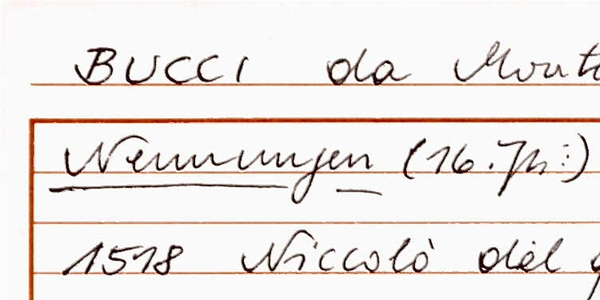 BUCCI da
Nennungen (16. Jh:)
1518 Niccolò del